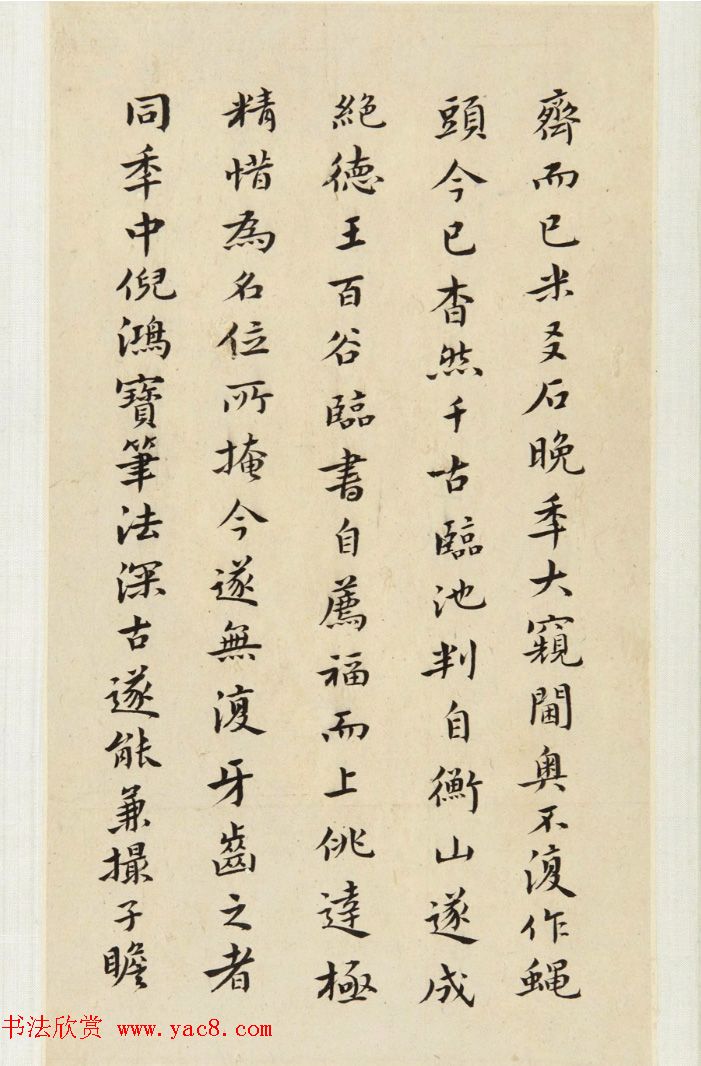 齊而已米友石晚秊大窺閫奥不復作蝇
頭今已杳然千古臨池判自衡山遂成
絶德王百谷臨書自薦福而上佻達極
精惜為名位所掩今遂無復牙齒之者
同秊中倪鴻寶筆法深古遂能兼撮子瞻
书法欣赏 www.yac8.com